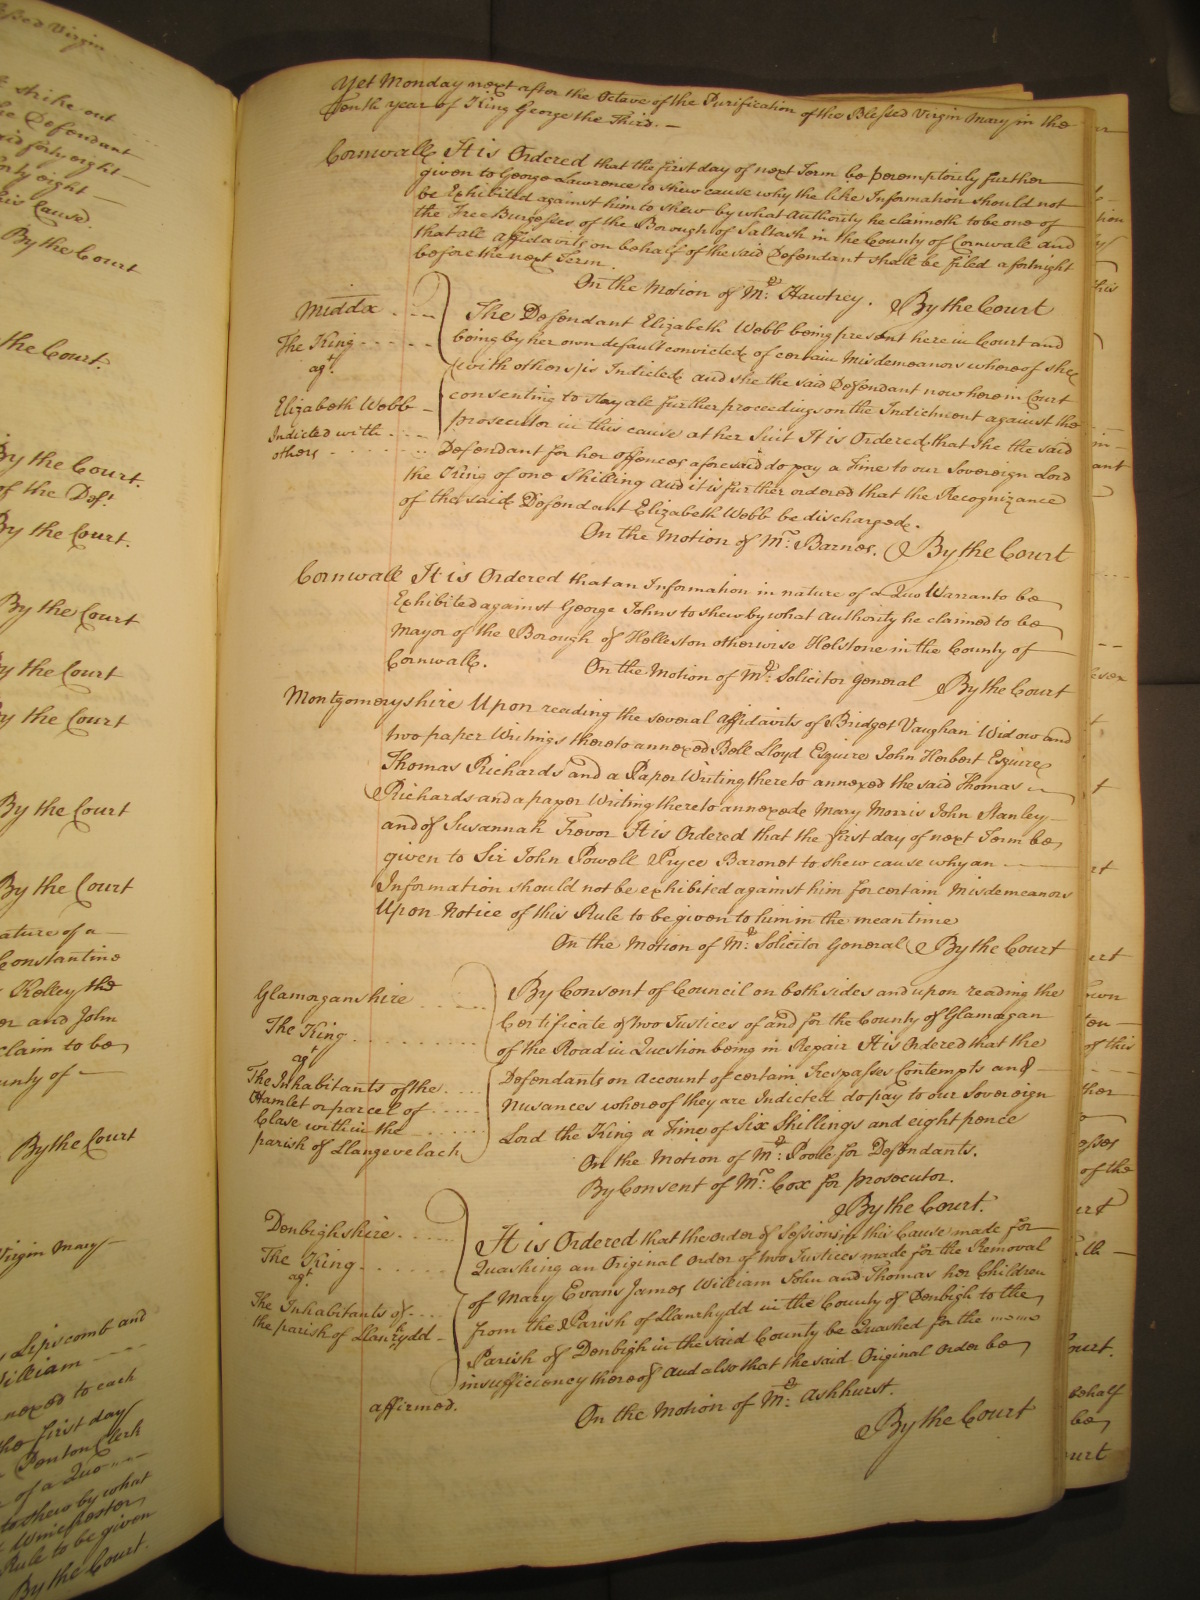 Blessed Virgin
strike out
the Defendant
said forty eight
forty eight
his Cause
By the Court
the Court.
By the Court.
of the Def.t
By the Court.
By the Court
By the Court
By the Court
By the Court
By the Court
nature of a
Constantine
Kelley the
and John
claim to be
County of
By the Court
Virgin Mary
Lipscomb and
William
annexed to each
the first day
Penton Clerk
of a Quo
to shew by what
Winchester
Rule to be given
By the Court.
Yet Monday next after the Octave of the Purification of the Blessed Virgin Mary in the
Tenth year of King George the Third.
Cornwall It is Ordered that the first day of next Term be peremptorily further
given to George Lawrence to shew cause why the like Information should not
be Exhibited against him to shew by what Authority he claimeth to be one of
the Free Burgesses of the Borough of Saltash in the County of Cornwall and
that all Affidavits on behalf of the said Defendant shall be filed a fortnight
before the next Term
On the Motion of Mr. Hawtrey. By the Court
Middx
The King
agt.
Elizabeth Webb
Indicted with
others
The Defendant Elizabeth Webb being present here in Court and
being by her own default convicted of certain Misdemeanors whereof she
(with others) is Indicted and she the said Defendant now here in Court
consenting to stay all further proceedings on the Indictment against the
prosecutor in this cause at her Suit It is Ordered that She the said
Defendant for her Offences aforesaid do pay a Fine to our Sovereign Lord
the King of one Shilling and it is further ordered that the Recognizance
of the said Defendant Elizabeth Webb be discharged.
On the Motion of Mr. Barnes. By the Court
Cornwall It is Ordered that an Information in nature of a Quo Warranto be
Exhibited against George Johns to shew by what Authority he claimed to be
Mayor of the Borough of Helleston otherwise Helstone in the County of
Cornwall. On the Motion of Mr. Solicitor General By the Court
Montgomeryshire Upon reading the several Affidavits of Bridget Vaughan Widow and
two paper Writings thereto annexed Bell Lloyd Esquire John Herbert Esquire
Thomas Richards and a Paper Writing thereto annexed the said Thomas
Richards and a paper Writing thereto annexed Mary Morris John Stanley
and of Susannah Trevor It is Ordered that the first day of next Term be
given to Sir John Powell Pryce Baronet to shew cause why an
Information should not be exhibited against him for certain Misdemeanors
Upon Notice of this Rule to be given to him in the mean time
On the Motion of Mr. Solicitor General By the Court
Glamorganshire
The King
agt
The Inhabitants of the
Hamlet or parcel of
Clase within the
parish of Llangevelach
By Consent of Council on both sides and upon reading the
Certificate of two Justices of and for the County of Glamorgan
of the Road in Question being in Repair It is Ordered that the
Defendants on Account of certain Trespasses Contempts and
Nusances whereof they are Indicted do pay to our Sovereign
Lord the King a Fine of Six Shillings and eight pence
On the Motion of Mr. Poole for Defendants.
By Consent of Mr. Cox for prosecutor.
By the Court.
Denbighshire
The King
agt
The Inhabitants of
the parish of Llanrhydd
It is Ordered that the order of Sessions in this Cause made for
Quashing an Original Order of two Justices made for the Removal
of Mary Evans James William John and Thomas her Children
from the Parish of Llanrhydd in the County of Denbigh to the
Parish of Denbigh in the said County be Quashed for the
insufficiency thereof and also that the said Original Order be
affirmed.
On the Motion of Mr. Ashhurst.
By the Court